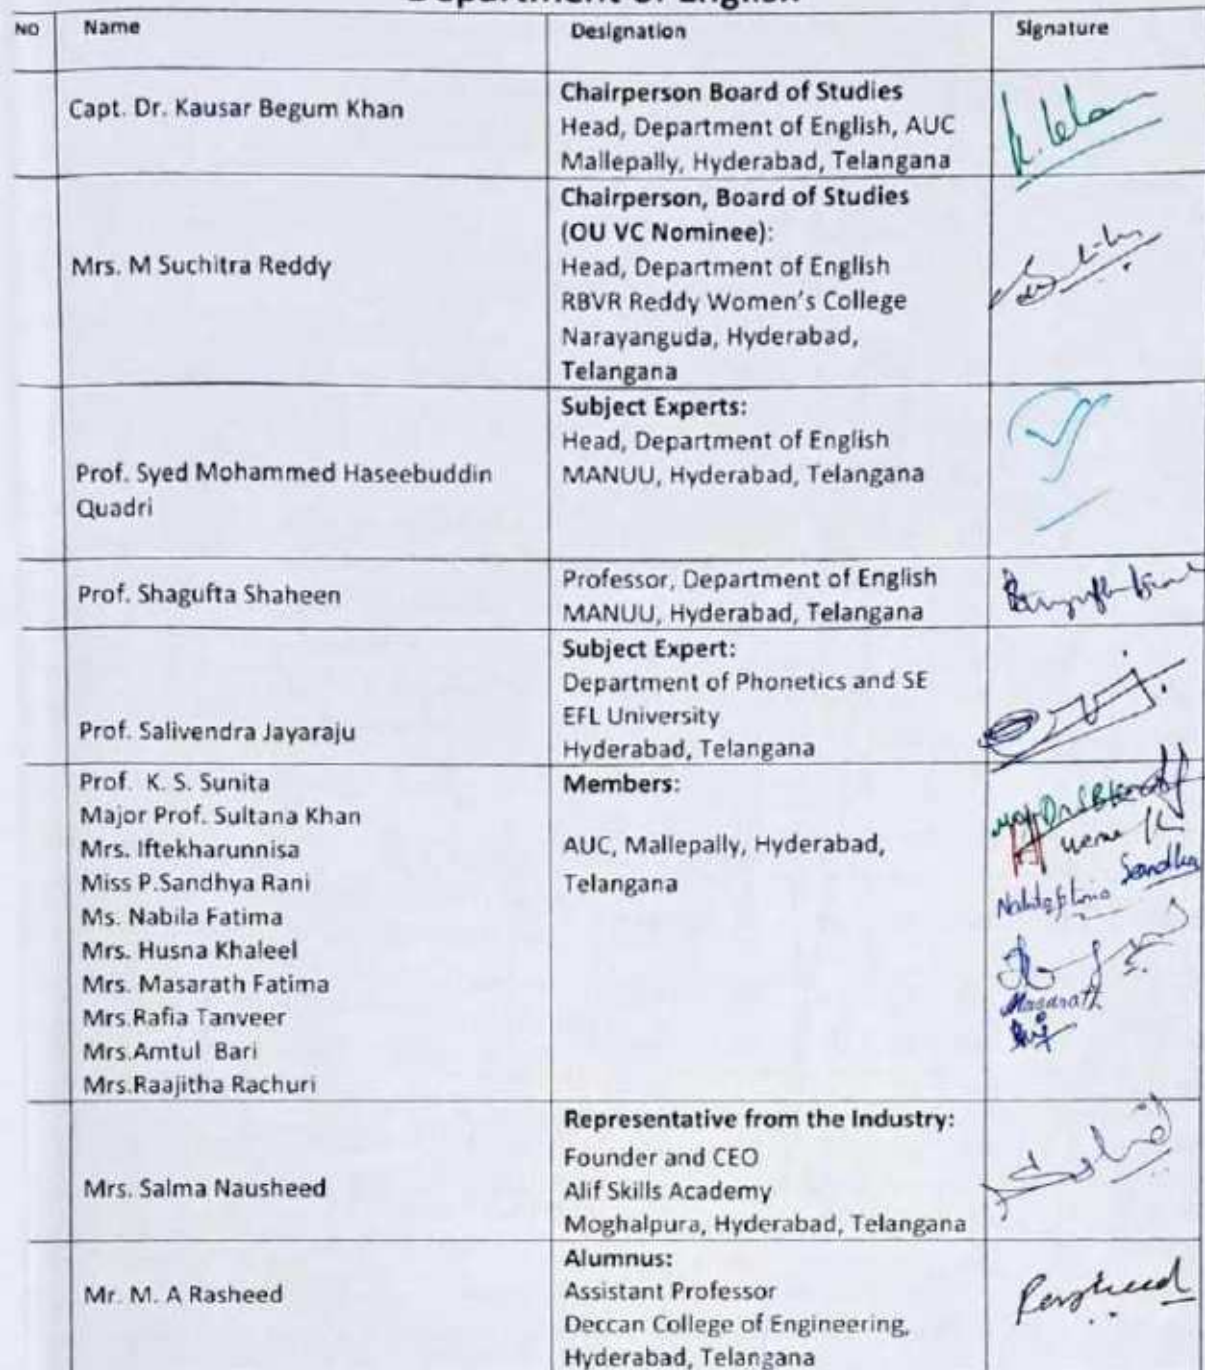 Department of English
NO Name Designation Signature
Capt. Dr. Kausar Begum Khan
Chairperson Board of Studies
Head, Department of English, AUC
Mallepally, Hyderabad, Telangana
Mrs. M Suchitra Reddy
Chairperson, Board of Studies
(OU VC Nominee):
Head, Department of English
RBVR Reddy Women's College
Narayanguda, Hyderabad,
Telangana
Prof. Syed Mohammed Haseebuddin
Quadri
Subject Experts:
Head, Department of English
MANUU, Hyderabad, Telangana
Prof. Shagufta Shaheen
Professor, Department of English
MANUU, Hyderabad, Telangana
Prof. Salivendra Jayaraju
Subject Expert:
Department of Phonetics and SE
EFL University
Hyderabad, Telangana
Prof. K. S. Sunita
Major Prof. Sultana Khan
Mrs. Iftekharunnisa
Miss P.Sandhya Rani
Ms. Nabila Fatima
Mrs. Husna Khaleel
Mrs. Masarath Fatima
Mrs.Rafia Tanveer
Mrs.Amtul Bari
Mrs.Raajitha Rachuri
Members:
AUC, Mallepally, Hyderabad,
Telangana
Masarath
Mrs. Salma Nausheed
Representative from the Industry:
Founder and CEO
Alif Skills Academy
Moghalpura, Hyderabad, Telangana
Mr. M. A Rasheed
Alumnus:
Assistant Professor
Deccan College of Engineering,
Hyderabad, Telangana